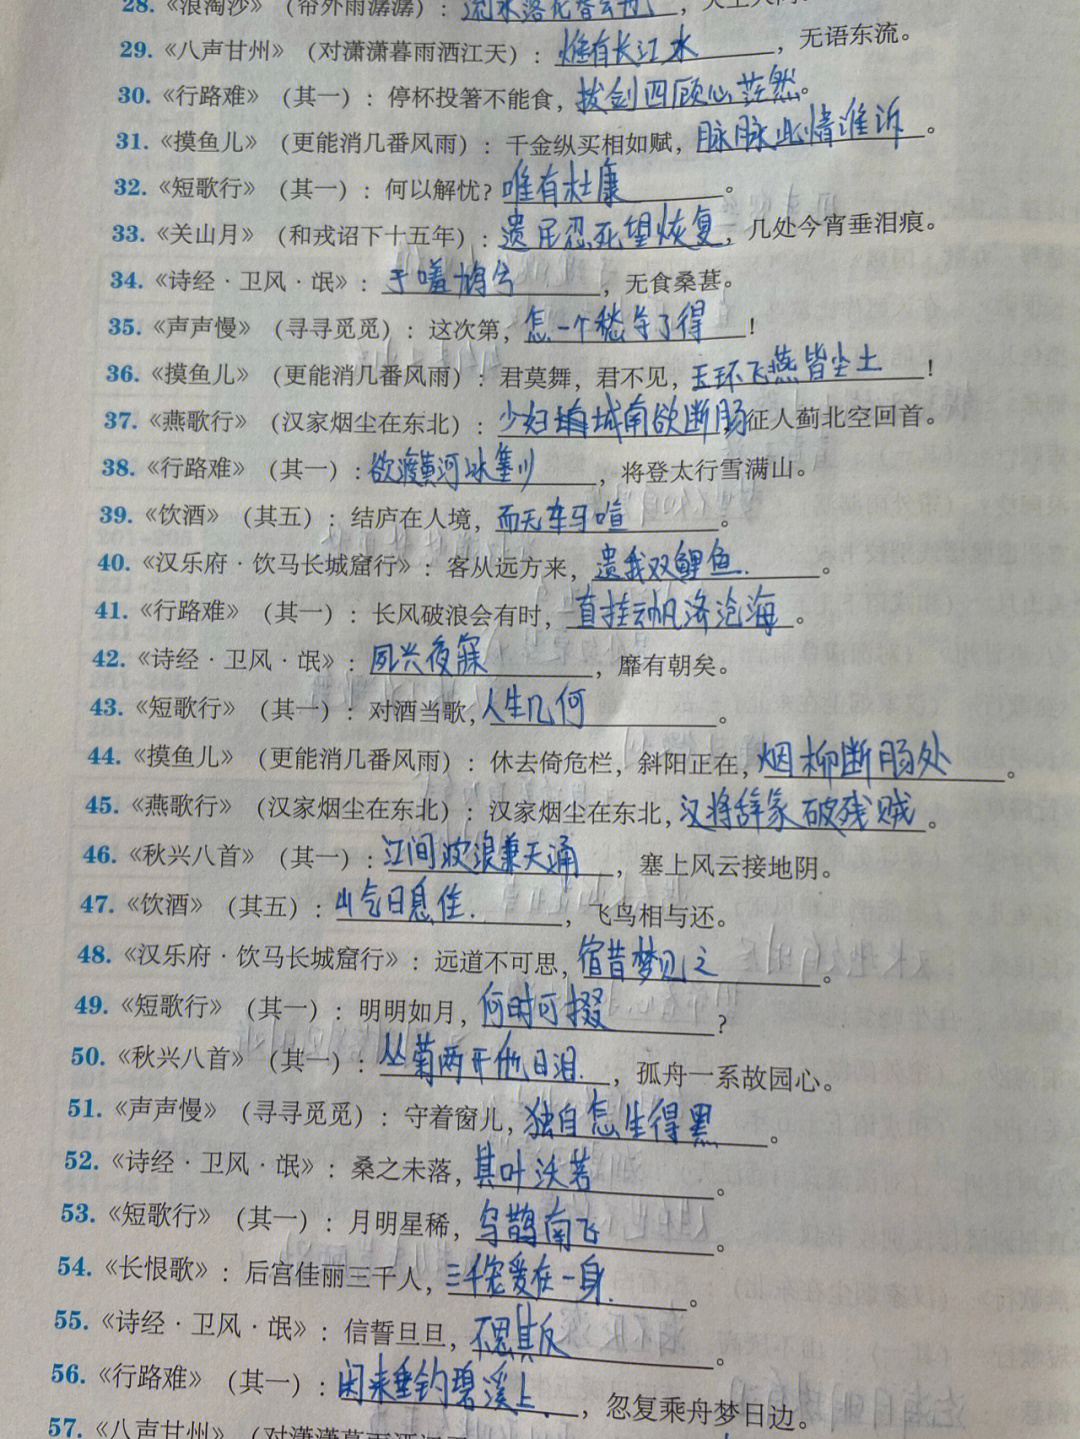 28.《浪淘沙》（帘外雨潺潺）：流水落花春去也，天上人间
29.《八声甘州》（对潇潇暮雨洒江天）：惟有长江水，无语东流。
30.《行路难》（其一）：停杯投箸不能食，拔剑四顾心茫然。
31.《摸鱼儿》（更能消几番风雨）：千金纵买相如赋，脉脉此情谁诉。
32.《短歌行》（其一）：何以解忧？唯有杜康。
33.《关山月》（和戎诏下十五年）：遗民忍死望恢复，几处今宵垂泪痕。
34.《诗经·卫风·氓》：于嗟鸠兮，无食桑葚。
35.《声声慢》（寻寻觅觅）：这次第，怎一个愁字了得！
36.《摸鱼儿》（更能消几番风雨）：君莫舞，君不见，玉环飞燕皆尘土！
37.《燕歌行》（汉家烟尘在东北）：少妇城南欲断肠征人蓟北空回首。
38.《行路难》（其一）：欲渡黄河冰塞川，将登太行雪满山。
39.《饮酒》（其五）：结庐在人境，而无车马喧。
40.《汉乐府·饮马长城窟行》：客从远方来，遗我双鲤鱼。
41.《行路难》（其一）：长风破浪会有时，直挂云帆济沧海。
42.《诗经·卫风·氓》：夙兴夜寐，靡有朝矣。
43.《短歌行》（其一）：对酒当歌，人生几何。
44.《摸鱼儿》（更能消几番风雨）：休去倚危栏，斜阳正在，烟柳断肠处。
45.《燕歌行》（汉家烟尘在东北）：汉家烟尘在东北，汉将辞家破残贼。
46.《秋兴八首》（其一）：江间波浪兼天涌，塞上风云接地阴。
47.《饮酒》（其五）：山气日息佳，飞鸟相与还。
48.《汉乐府·饮马长城窟行》：远道不可思，宿昔梦见之。
49.《短歌行》（其一）：明明如月，何时可掇？
50.《秋兴八首》（其一）：丛菊两开他日泪，孤舟一系故园心。
51.《声声慢》（寻寻觅觅）：守着窗儿，独自怎生得黑。
52.《诗经·卫风·氓》：桑之未落，其叶沃若。
53.《短歌行》（其一）：月明星稀，乌鹊南飞。
54.《长恨歌》：后宫佳丽三千人，三千宠爱在一身。
55.《诗经·卫风·氓》：信誓旦旦，不思其反。
56.《行路难》（其一）：闲来垂钓碧溪上，忽复乘舟梦日边。
57.《八声甘州》（对潇潇暮雨洒江天